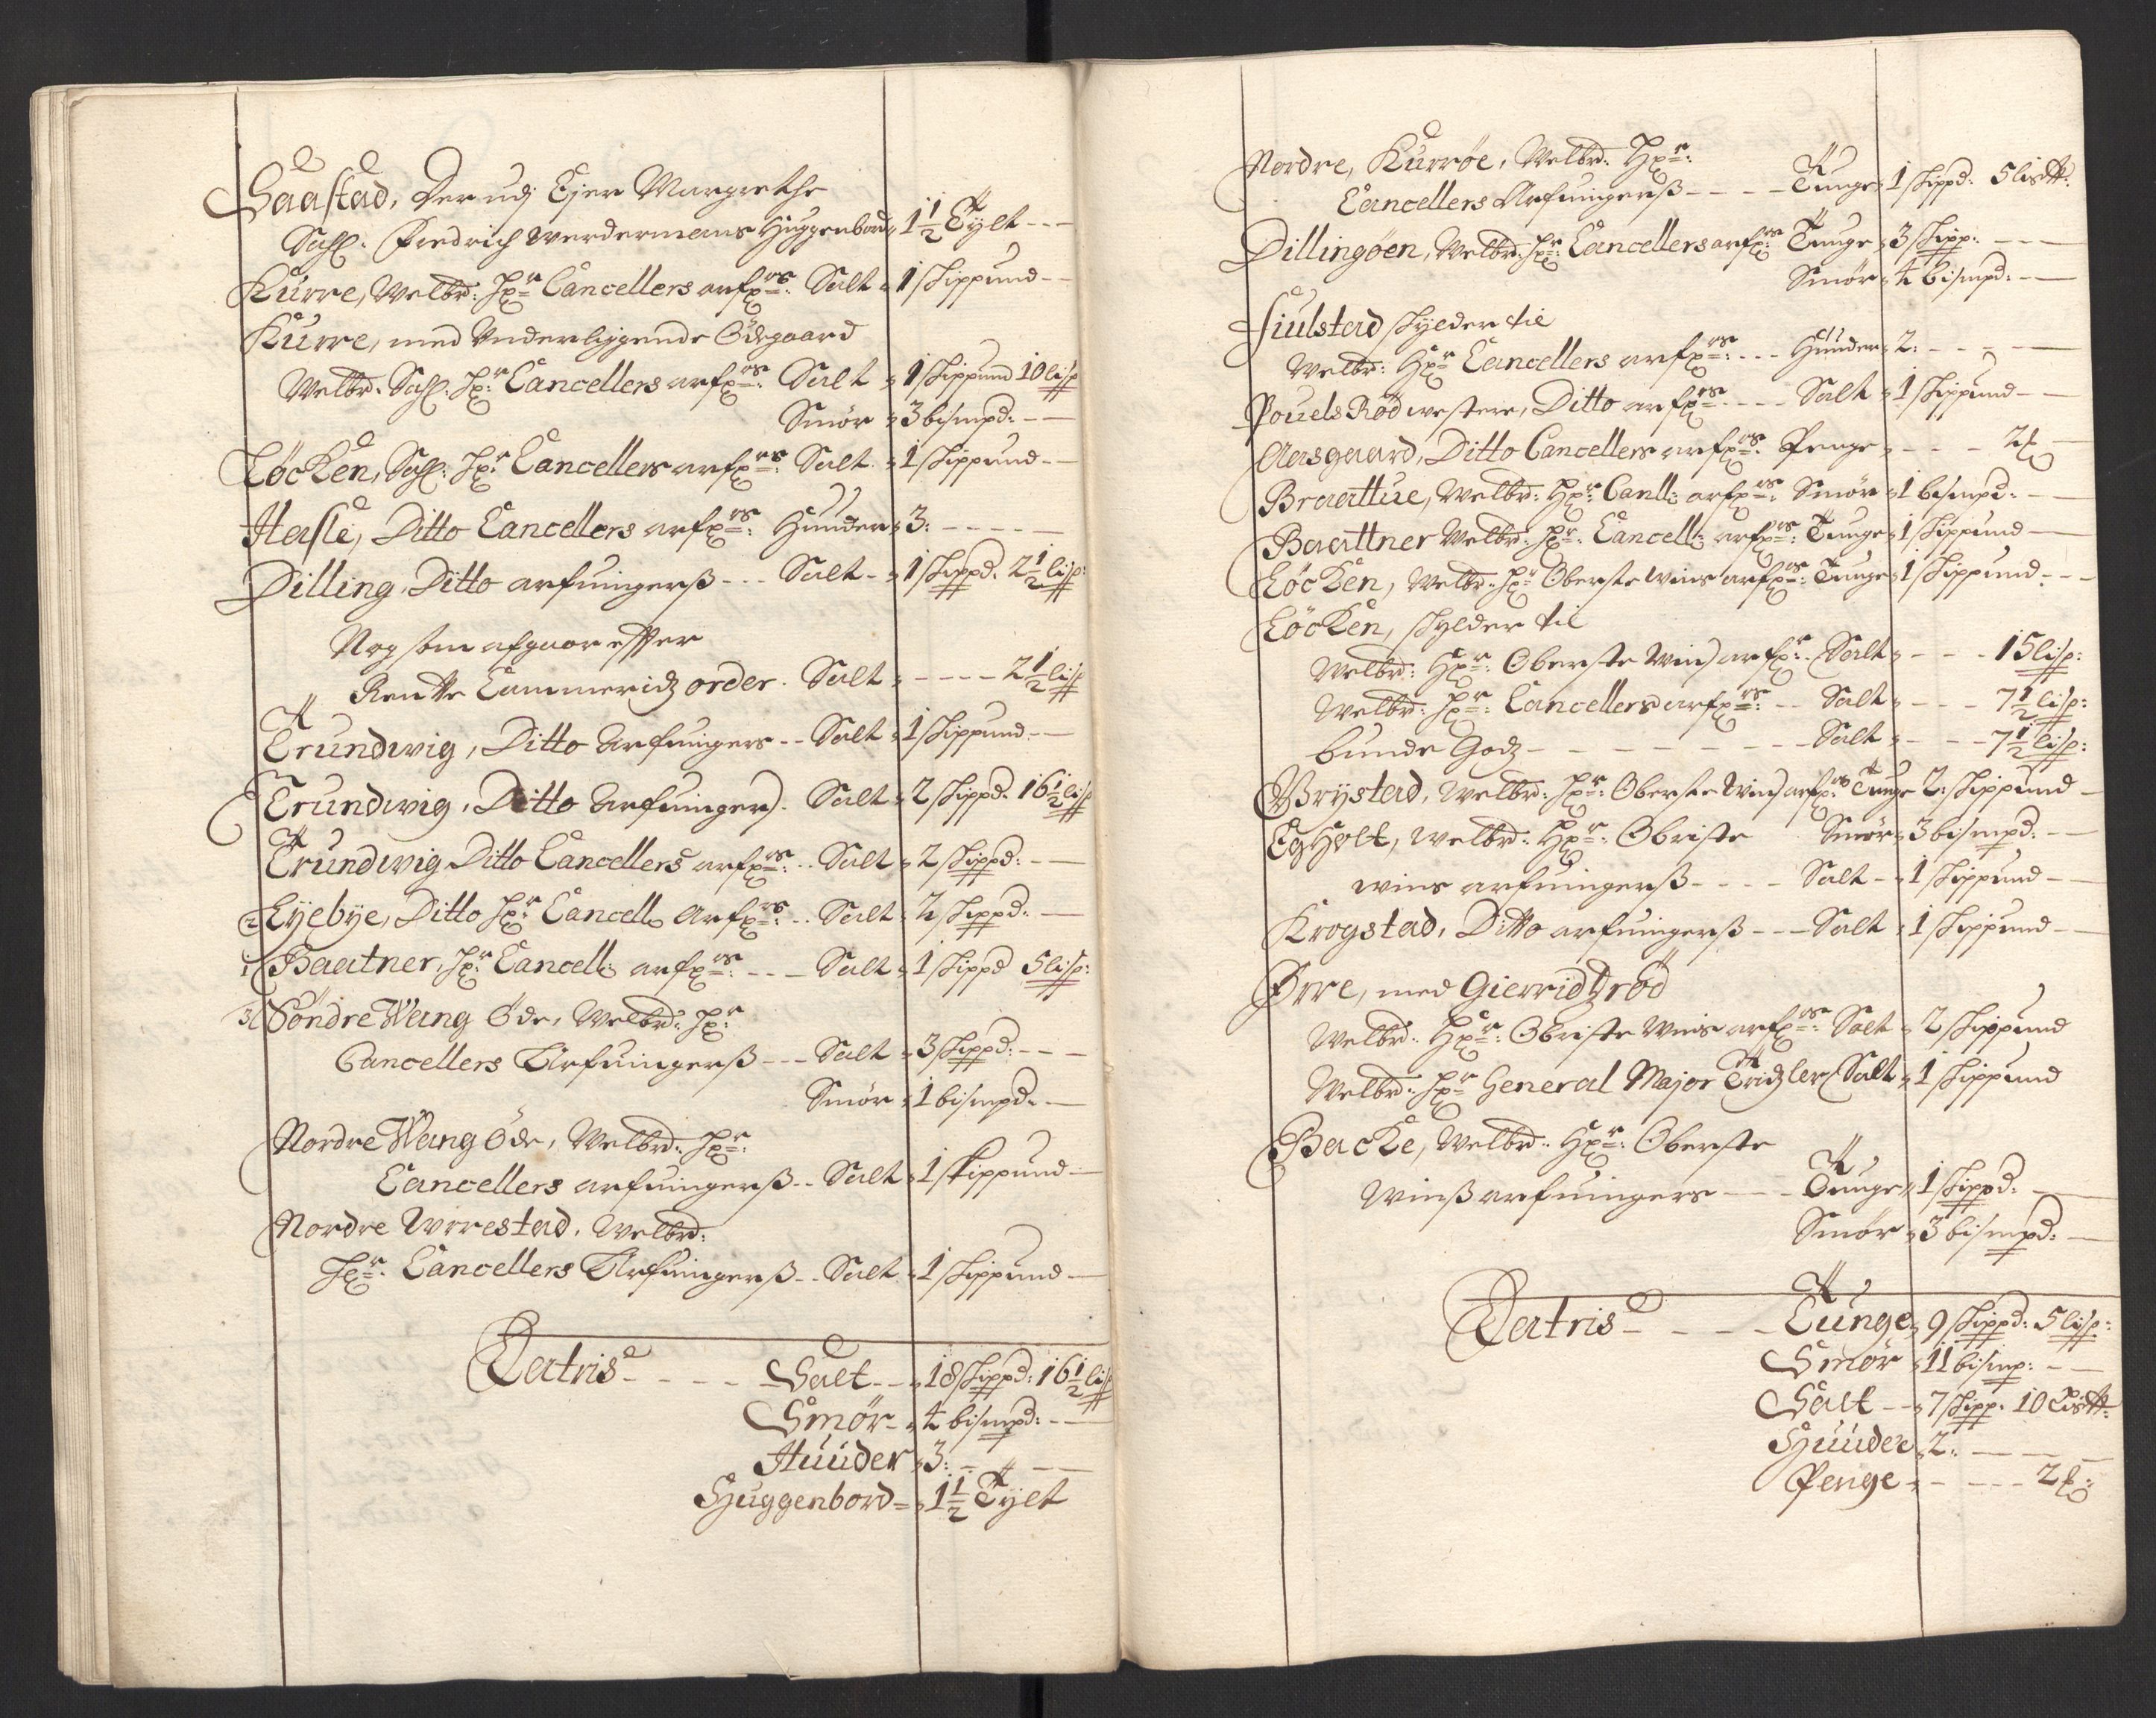 Saastad, Der udj Ejer Margrethe
Sahl: Fredrich Werdermans Huggenbord 1 1/2 Tylt - - -
Kurre, Welbr: Hr: Cancellers arf:rs: Salt 1 skippund - -
Kurre, med Underliggende Ödegaard
Welbr: Sahl: Hr: Cancellers arf:rs: Salt 1 skippund 10 lisp
Smør 3 bismpd: - -
Löcken, Sahl: Hr: Cancellers arf:rs: Salt 1 skippund - -
Hasle, Ditto Cancellers arf:rs: Huuder 3: - - - -
Dilling, Ditto arfuingerß - - - Salt - 1 skippd. 2 1/2 lisp:
Nog som afgaar effter
Rentte Cammeridz order. Salt - - - - 2 1/2 lisp
Trundwig, Ditto Arfuingers - - Salt 1 skippund - -
Trundwig, Ditto Arfuinger). Salt 2 skippd. 16 1/2 lisp
Trundwig Ditto Cancellers arf:rs: - - Salt 2 skippd: - -
2 Eyebye, Ditto Hr: Cancell: Arf:rs: - - Salt 2 skippd: -
1 Baatner, Hr: Cancell: arf:rs: - - - Salt 1 skippd 5 lisp:
3 Söndre Wang Öde, Welbr: Hr:
Cancellers Arfuingerß - - - Salt 3 skippd: - - -
Smør 1 bismpd: -
Nordre Wang Öde, Welbr: Hr:
Cancellers arfuingerß - - Salt 1 skippund -
Nordre Worestad, Welbr:
Hr: Cancellers Arfuingerß - - Salt 1 skippund -
Latris - - - - Salt - - 18 skippd: 16 1/2 lisp
Smør - 4 bismpd: - -
Huuder 3: - - -
Huggenbord = 1 1/2 Tylt
Nordre, Kurröe, Welbr: Hr:
Cancellers Arfuingerß - - - - Tunge 1 skippd: 5 lis℔:
Dillingöen, Welbr: Hr: Cancellers arf:rs Tunge 3 skipp: - - -
Smör 4 bismpd: - -
Fiulstad skylder til
Welbr: Hr Cancellers arf:rs: - - - Huuder 2: - - - -
Pouels Röd westere, Ditto arf:rs: - - - Salt 1 skippund - -
Aasgaard, Ditto Cancellers arf:rs: Penge - - - 2 ß
Braattue, Welbr: Hr: Canll: arf:rs: Smör 1 bismpd: - -
Baattner Welbr: Hr: Cancell: arf:rs: Tunge 1 skippund -
Löcken, Welbr: Hr Oberste Wins arf:rs: Tunge 1 skippund - - -
Löcken, skylder til
Welbr: Hr: Oberste Wins arf:r: Salt - - - 15 lisp:
Welbr: Hr: Cancellers arf:rs: - - Salt - - - 7 1/2 lisp:
bunde Godz - - - - - - - - Salt - - - 7 1/2 lisp:
Brystad, Welbr: Hr: Oberste Wins arf:rs Tunge 2: skippund -
Egholt, Welbr: Hr: Obriste Smör 3 bismpd: - -
Wins arfuingerß - - - - Salt - 1 skippund - -
Krogstad, Ditto arfuingerß - - - Salt 1 skippund - -
Ørre, med Gierridtzröd
Welbr: Hr: Obriste Wins arf:rs: Salt 2 skippund
Welbr: Hr General Major Tridzler Salt 1 skippund
Backe, Welbr: Hr: Oberste
Winß arfuingers - - - Tunge 1 skippd: -
Smör 3 bismpd: -
Latris - - - - Tunge 9 skippd: 5 lisp:
Smör 11 bismp: - -
Salt - - 7 skipp. 10 Lis℔:
Huuder 2: - - -
Penge - - - - 2 ß: